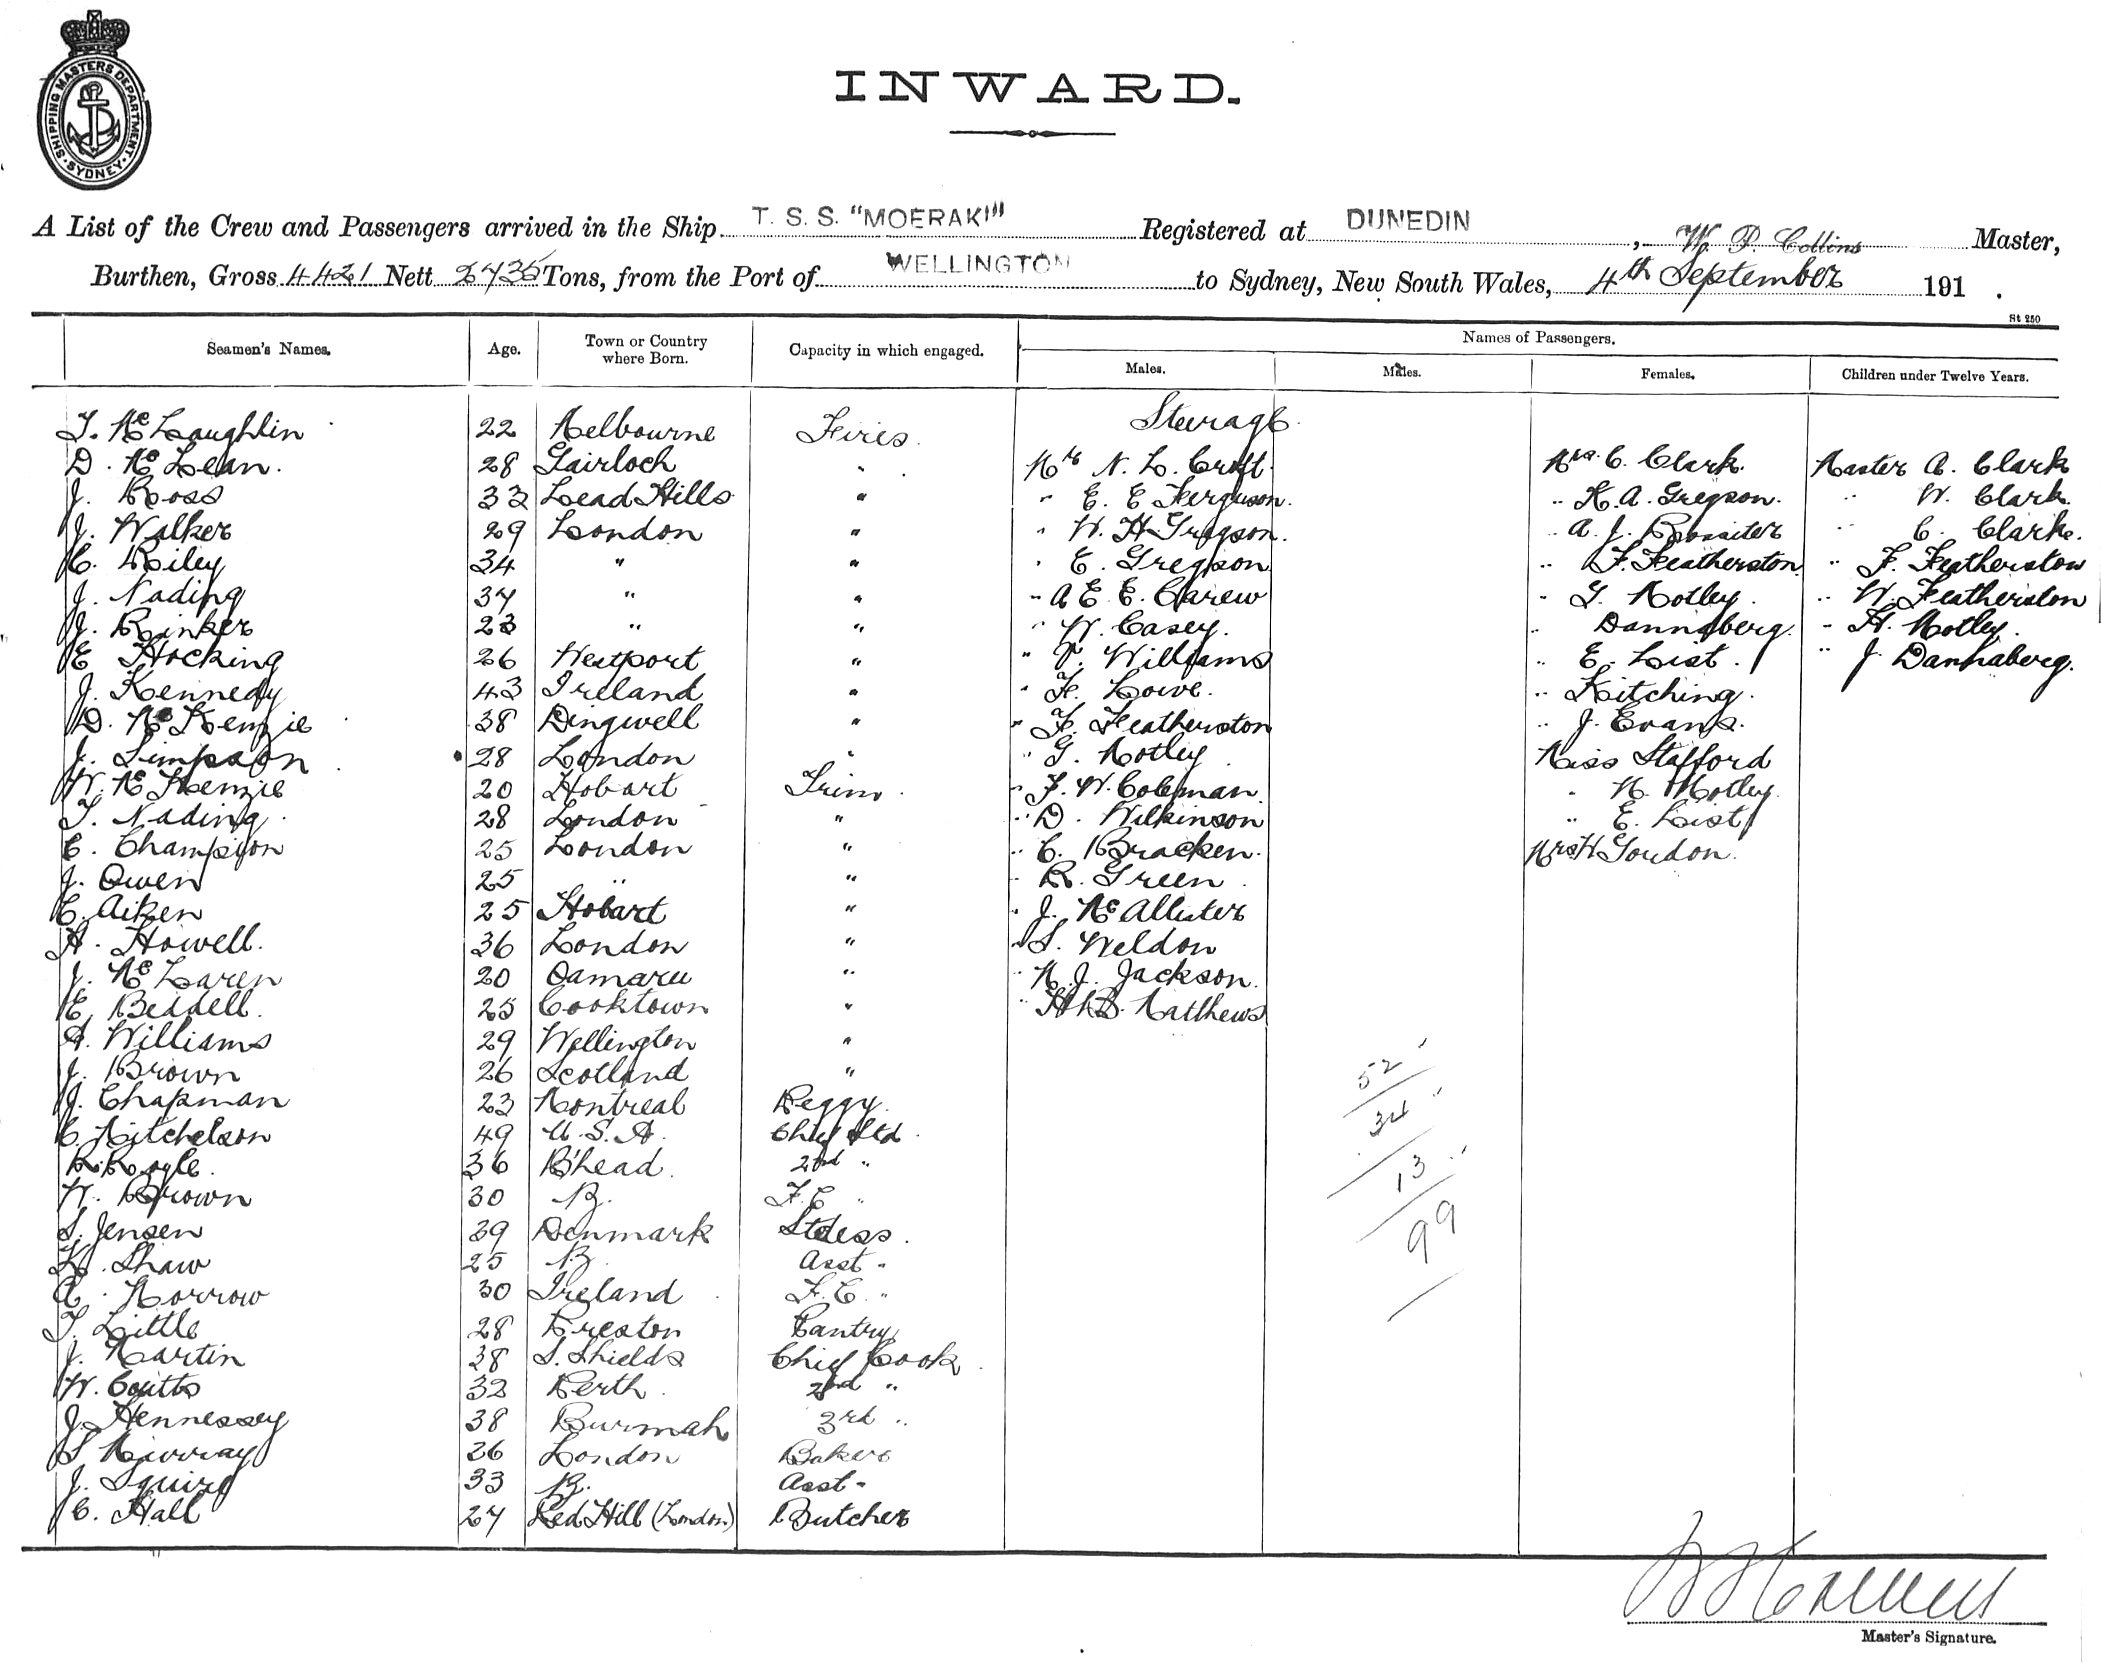 SHIPPING MASTERS DEPARTMENT · SYDNEY ·
INWARD.
A List of the Crew and Passengers arrived in the Ship T. S. S. "MOERAKI" Registered at DUNEDIN, W. P. Collins Master,
Burthen, Gross 4421 Nett 2735 Tons, from the Port of WELLINGTON to Sydney, New South Wales, 4th September 191 .
St 250
Seamen's Names. Age. Town or Country where Born. Capacity in which engaged. Names of Passengers.
Males. Males. Females. Children under Twelve Years.
Steerage
T. McLaughlin 22 Melbourne Fires
D. McLean. 28 Gairloch " Mr N. L. Croft. Mrs C. Clark. Master A. Clark
J. Ross 32 Lead Hills " " E. E. Ferguson. " K. A. Gregson. " W. Clark.
J. Walker 29 London " " W. H. Gregson. " A. J. Rossiter " C. Clark.
C. Riley 34 " " " E. Gregson " F. Featherston. " F. Featherston
J. Nading 37 " " " A E. E. Carew " G. Motley. " W. Featherston
J. Rinker 23 " " " W. Casey. " Dannaberg. " H. Motley.
E Hocking 26 Westport " " T. Williams " E. List. " J. Dannaberg.
J. Kennedy 43 Ireland " " F. Lowe. " Kitching.
D. McKenzie 38 Dingwell " " F. Featherston " J. Evans.
J. Simpson 28 London " " G. Motley Miss Stafford
W. McKenzie 20 Hobart Trim. " F. W. Coleman. " M. Motley.
T. Nading. 28 London " " D. Wilkinson " E. List
C. Champion 25 London " " C. Bracken. Mrs H Gordon.
J. Owen 25 " " " R. Green.
C. Aiken 25 Hobart " " J. McAllister
H. Howell. 36 London " " S. Weldon
J. McLaren 20 Oamaru " " M. J. Jackson.
E. Beddell. 25 Cooktown " " H. B. Matthews
A. Williams 29 Wellington "
J. Brown 26 Scotland "
J. Chapman 23 Montreal Peggy.
C. Mitchelson 49 U. S. A. Chief Std.
R. Royle. 36 B'head. 2nd "
W. Brown 30 N.Z. F. C "
S. Jensen 39 Denmark Stdess.
L. Shaw 25 N.Z. Asst "
A. Morrow 30 Ireland F. C. "
T. Little 28 Preston Pantry
J. Martin 38 S. Shields Chief Cook
W. Coutts 32 Perth. 2nd "
J. Hennessey 38 Burmah 3rd "
S Murray 26 London Baker
J. Squire 33 N.Z. Asst "
C. Hall 27 Red Hill (London) Butcher
52
34
13
99
Master's Signature.